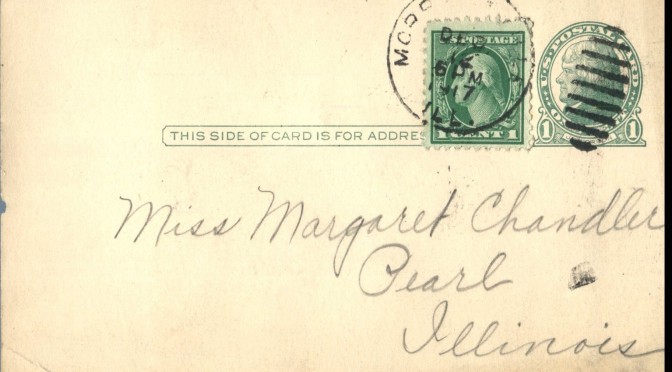 DEC
12
6 PM
1917
ILL
U.S. POSTAGE
1 CENT 1
U.S. POSTAL CARD
1 1
THIS SIDE OF CARD IS FOR ADDRE
Miss Margaret Chandler
Pearl
Illinois